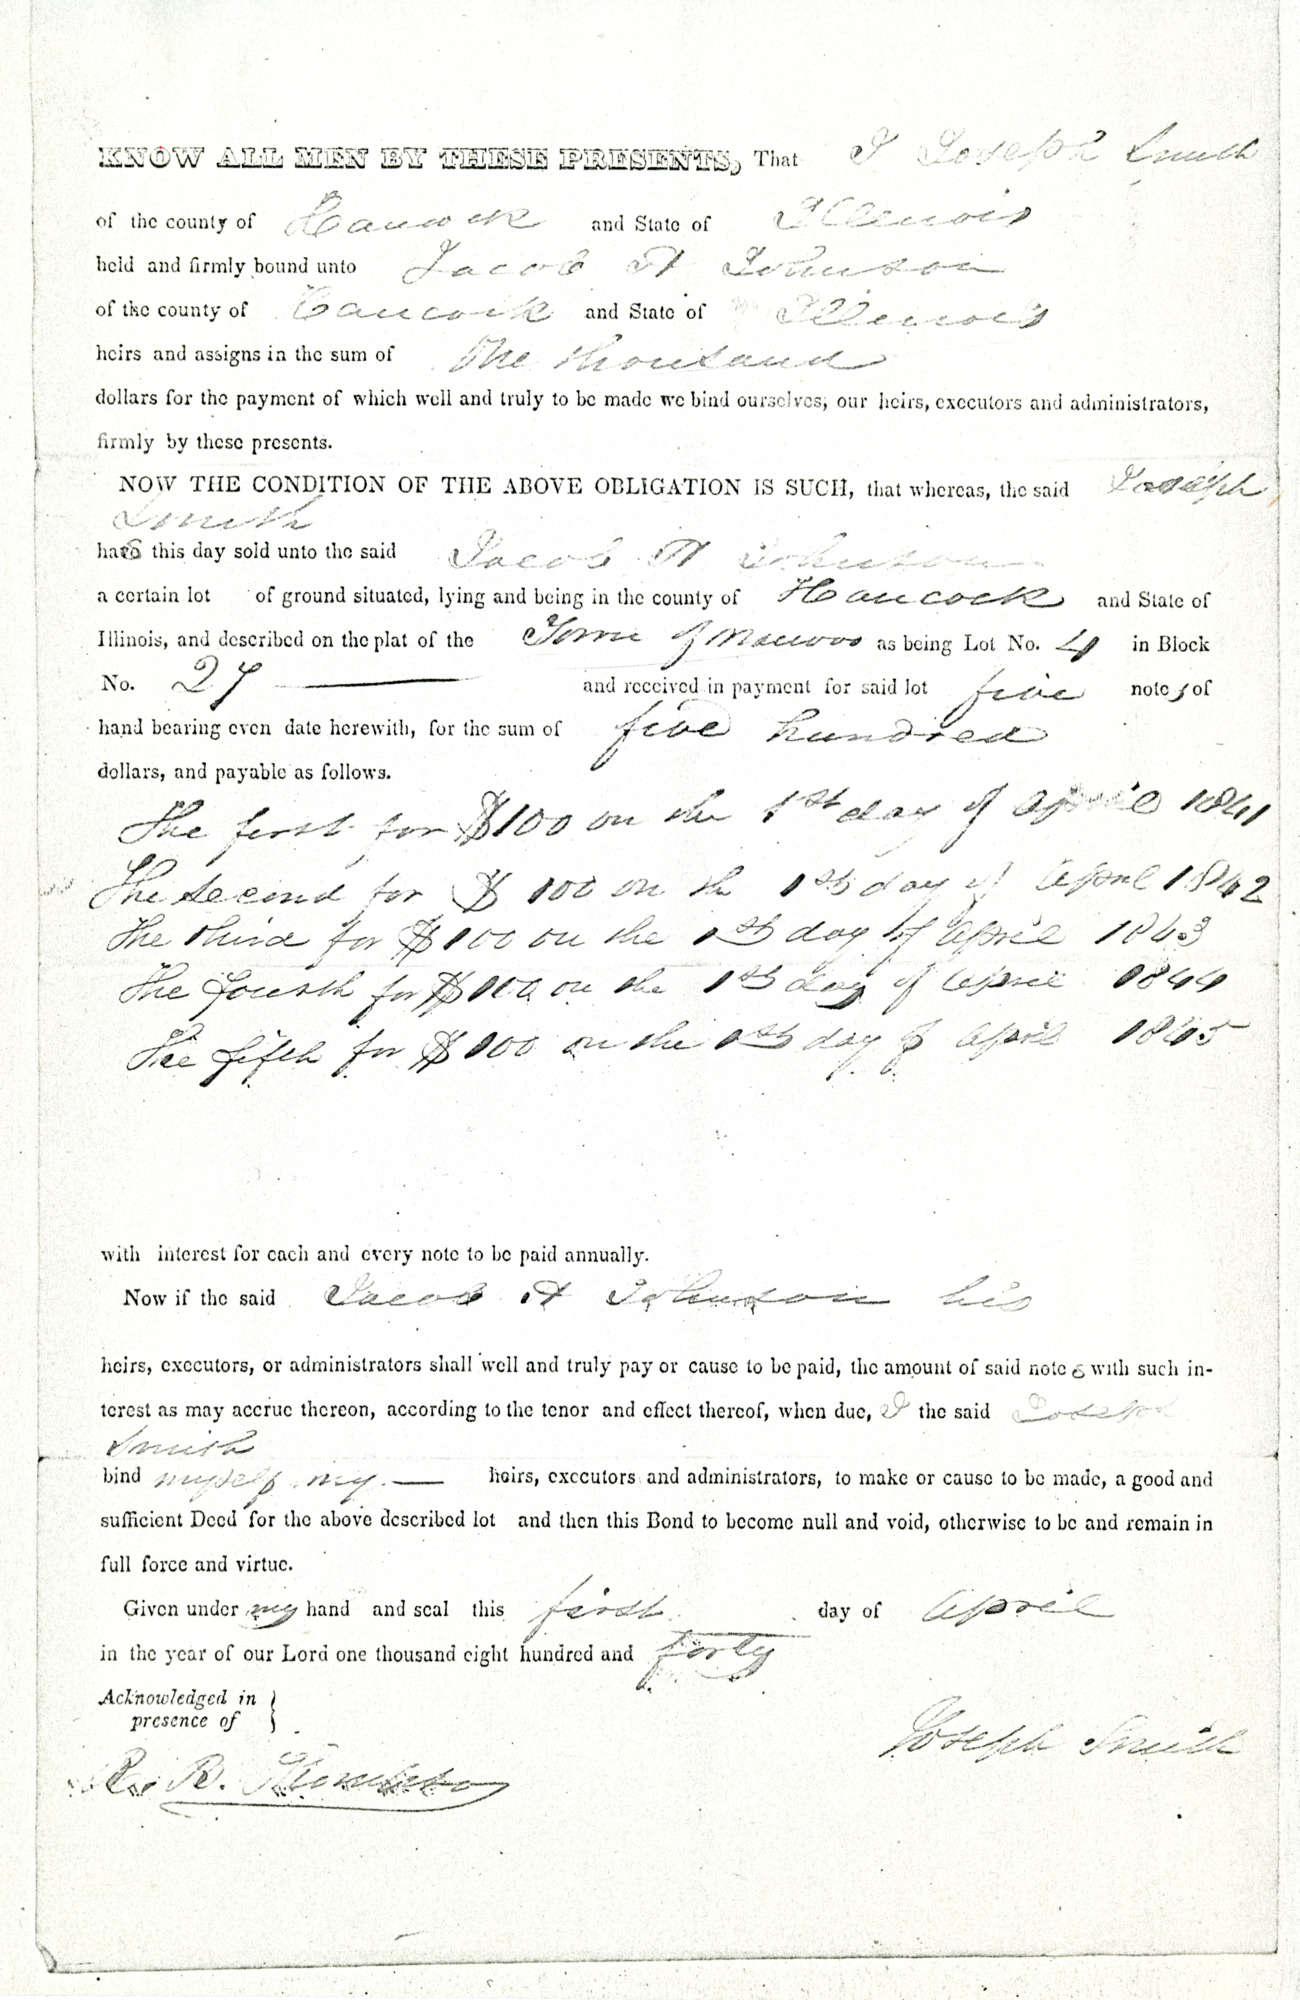 KNOW ALL MEN BY THESE PRESENTS, That I Joseph Smith
of the county of Hancock and State of Illenois
held and firmly bound unto Jacob A Johnson
of the county of Hancock and State of Illenois
heirs and assigns in the sum of One thousand
dollars for the payment of which well and truly to be made we bind ourselves, our heirs, executors and administrators,
firmly by these presents.
NOW THE CONDITION OF THE ABOVE OBLIGATION IS SUCH, that whereas, the said Joseph
Smith
has this day sold unto the said Jacob A Johnson
a certain lot of ground situated, lying and being in the county of Hancock and State of
Illinois, and described on the plat of the Town of Nauvoo as being Lot No. 4 in Block
No. 27 — and received in payment for said lot five notes of
hand bearing even date herewith, for the sum of five hundred
dollars, and payable as follows.
The first for $100 on the 1st day of April 1841
The second for $100 on the 1st day of April 1842
The third for $100 on the 1st day of April 1843
The fourth for $100 on the 1st day of April 1844
The fifth for $100 on the 1st day of April 1845
with interest for each and every note to be paid annually.
Now if the said Jacob A Johnson his
heirs, executors, or administrators shall well and truly pay or cause to be paid, the amount of said notes with such in-
terest as may accrue thereon, according to the tenor and effect thereof, when due, I the said Joseph
Smith
bind myself my — heirs, executors and administrators, to make or cause to be made, a good and
sufficient Deed for the above described lot and then this Bond to become null and void, otherwise to be and remain in
full force and virtue.
Given under my hand and seal this first day of April
in the year of our Lord one thousand eight hundred and forty
Acknowledged in
presence of
Joseph Smith
R. B. Thompson